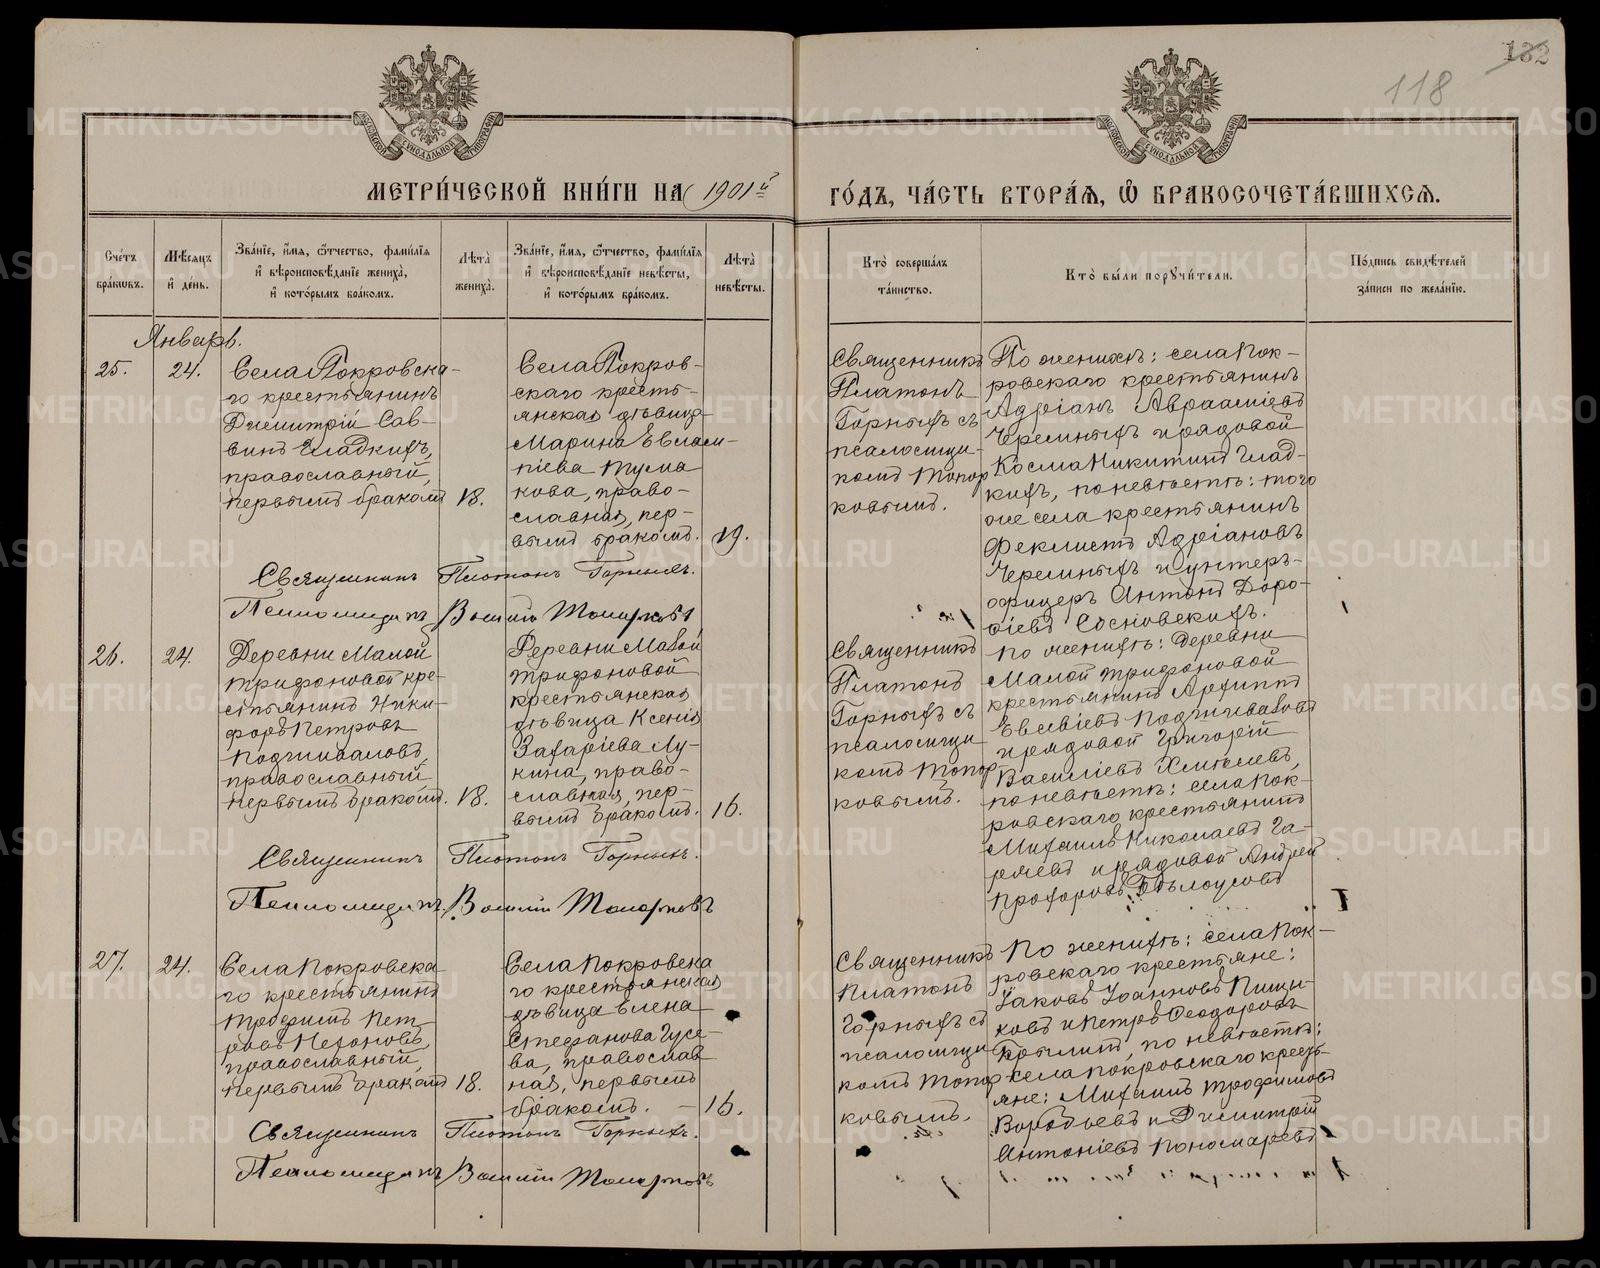 132
118
МЕТРИ́ЧЕСКОЙ КНИ́ГИ НА 1901й ГО́ДЪ, ЧА́СТЬ ВТОРА́Я, Ѡ БРАКОСОЧЕТА́ВШИХСЯ.
Сче́тъ
бра́кѡвъ.
Мѣ́сяцъ
и҆ де́нь.
Зва́нїе, и҆́мя, ѻ҆́тчество, фами́лїя
и҆ вѣроисповѣ́данїе жениха̀,
и҆ кото́рымъ бра́комъ.
Лѣ́та̀
жениха̀.
Зва́нїе, и҆́мя, ѻ҆́тчество, фами́лїя
и҆ вѣроисповѣ́данїе невѣ́сты,
и҆ кото́рымъ бра́комъ.
Лѣ́та̀
невѣ́сты.
Кто̀ соверша́лъ
та́инство.
Кто̀ бы́ли порꙋчи́тели.
По́дпись свидѣ́телей
за́писи по жела́нїю.
Январь.
25.
24.
Села Покровска-
го крестьянинъ
Димитрій Сав-
винъ Гладкихъ,
православный,
первымъ бракомъ
18.
Села Покров-
скаго кресть-
янская дѣвица
Марина Евлам-
піева Тума
кова, право-
славная, пер-
вымъ бракомъ.
19.
Священникъ
Платонъ
Горныхъ съ
псаломщи-
комъ Топор
ковымъ.
По женихѣ: села Пок-
ровскаго крестьянинъ
Адріанъ Аврааміевъ
Черемныхъ и рядовой
Косма Никитинъ Глад-
кихъ, по невѣстѣ: того
же села крестьянинъ
Феклистъ Адріановъ
Черемныхъ и унтеръ-
офицеръ Антонъ Доро-
ѳіевъ Сосновскихъ.
Священникъ Платонъ Горныхъ.
Псаломщикъ Василій Топорковъ
26.
24.
Деревни Малой
Трифоновой кре-
стьянинъ Ники-
форъ Петровъ
Подшиваловъ,
православный
первымъ бракомъ.
18.
Деревни Малой
Трифоновой
крестьянская
дѣвица Ксенія
Захаріева Лу-
кина, право-
славная, пер-
вымъ бракомъ.
16.
Священникъ
Платонъ
Горныхъ съ
псаломщи
комъ Топор-
ковымъ.
По женихѣ: деревни
Малой Трифоновой
крестьянинъ Архиппъ
Евсевіевъ Подшиваловъ
и рядовой Григорій
Василіевъ Хмѣлевъ,
по невѣстѣ: села Пок-
ровскаго крестьянинъ
Михаилъ Николаевъ Га-
ряевъ и рядовой Андрей
Прохоровъ Бѣлоусовъ
Священникъ Платонъ Горныхъ.
Псаломщикъ Василій Топорковъ
27.
24.
Села Покровска
го крестьянинъ
Трофимъ Пет-
ровъ Нехоновъ,
православный,
первымъ бракомъ
18.
Села Покровска
го крестьянская
дѣвица Елена
Стефанова Гусе-
ва, православ
ная, первымъ
бракомъ. —
16.
Священникъ
Платонъ
Горныхъ съ
псаломщи
комъ Топор
ковымъ.
По женихѣ: села Пок-
ровскаго крестьяне:
Іаковъ Іоанновъ Пищи-
ковъ и Петръ Ѳеодоровъ
Брылинъ, по невѣстѣ:
села Покровскаго кресть
яне: Михаилъ Трофимовъ
Воробьевъ и Димитрій
Антоніевъ Пономаревъ
Священникъ Платонъ Горныхъ.
Псаломщикъ Василій Топорковъ